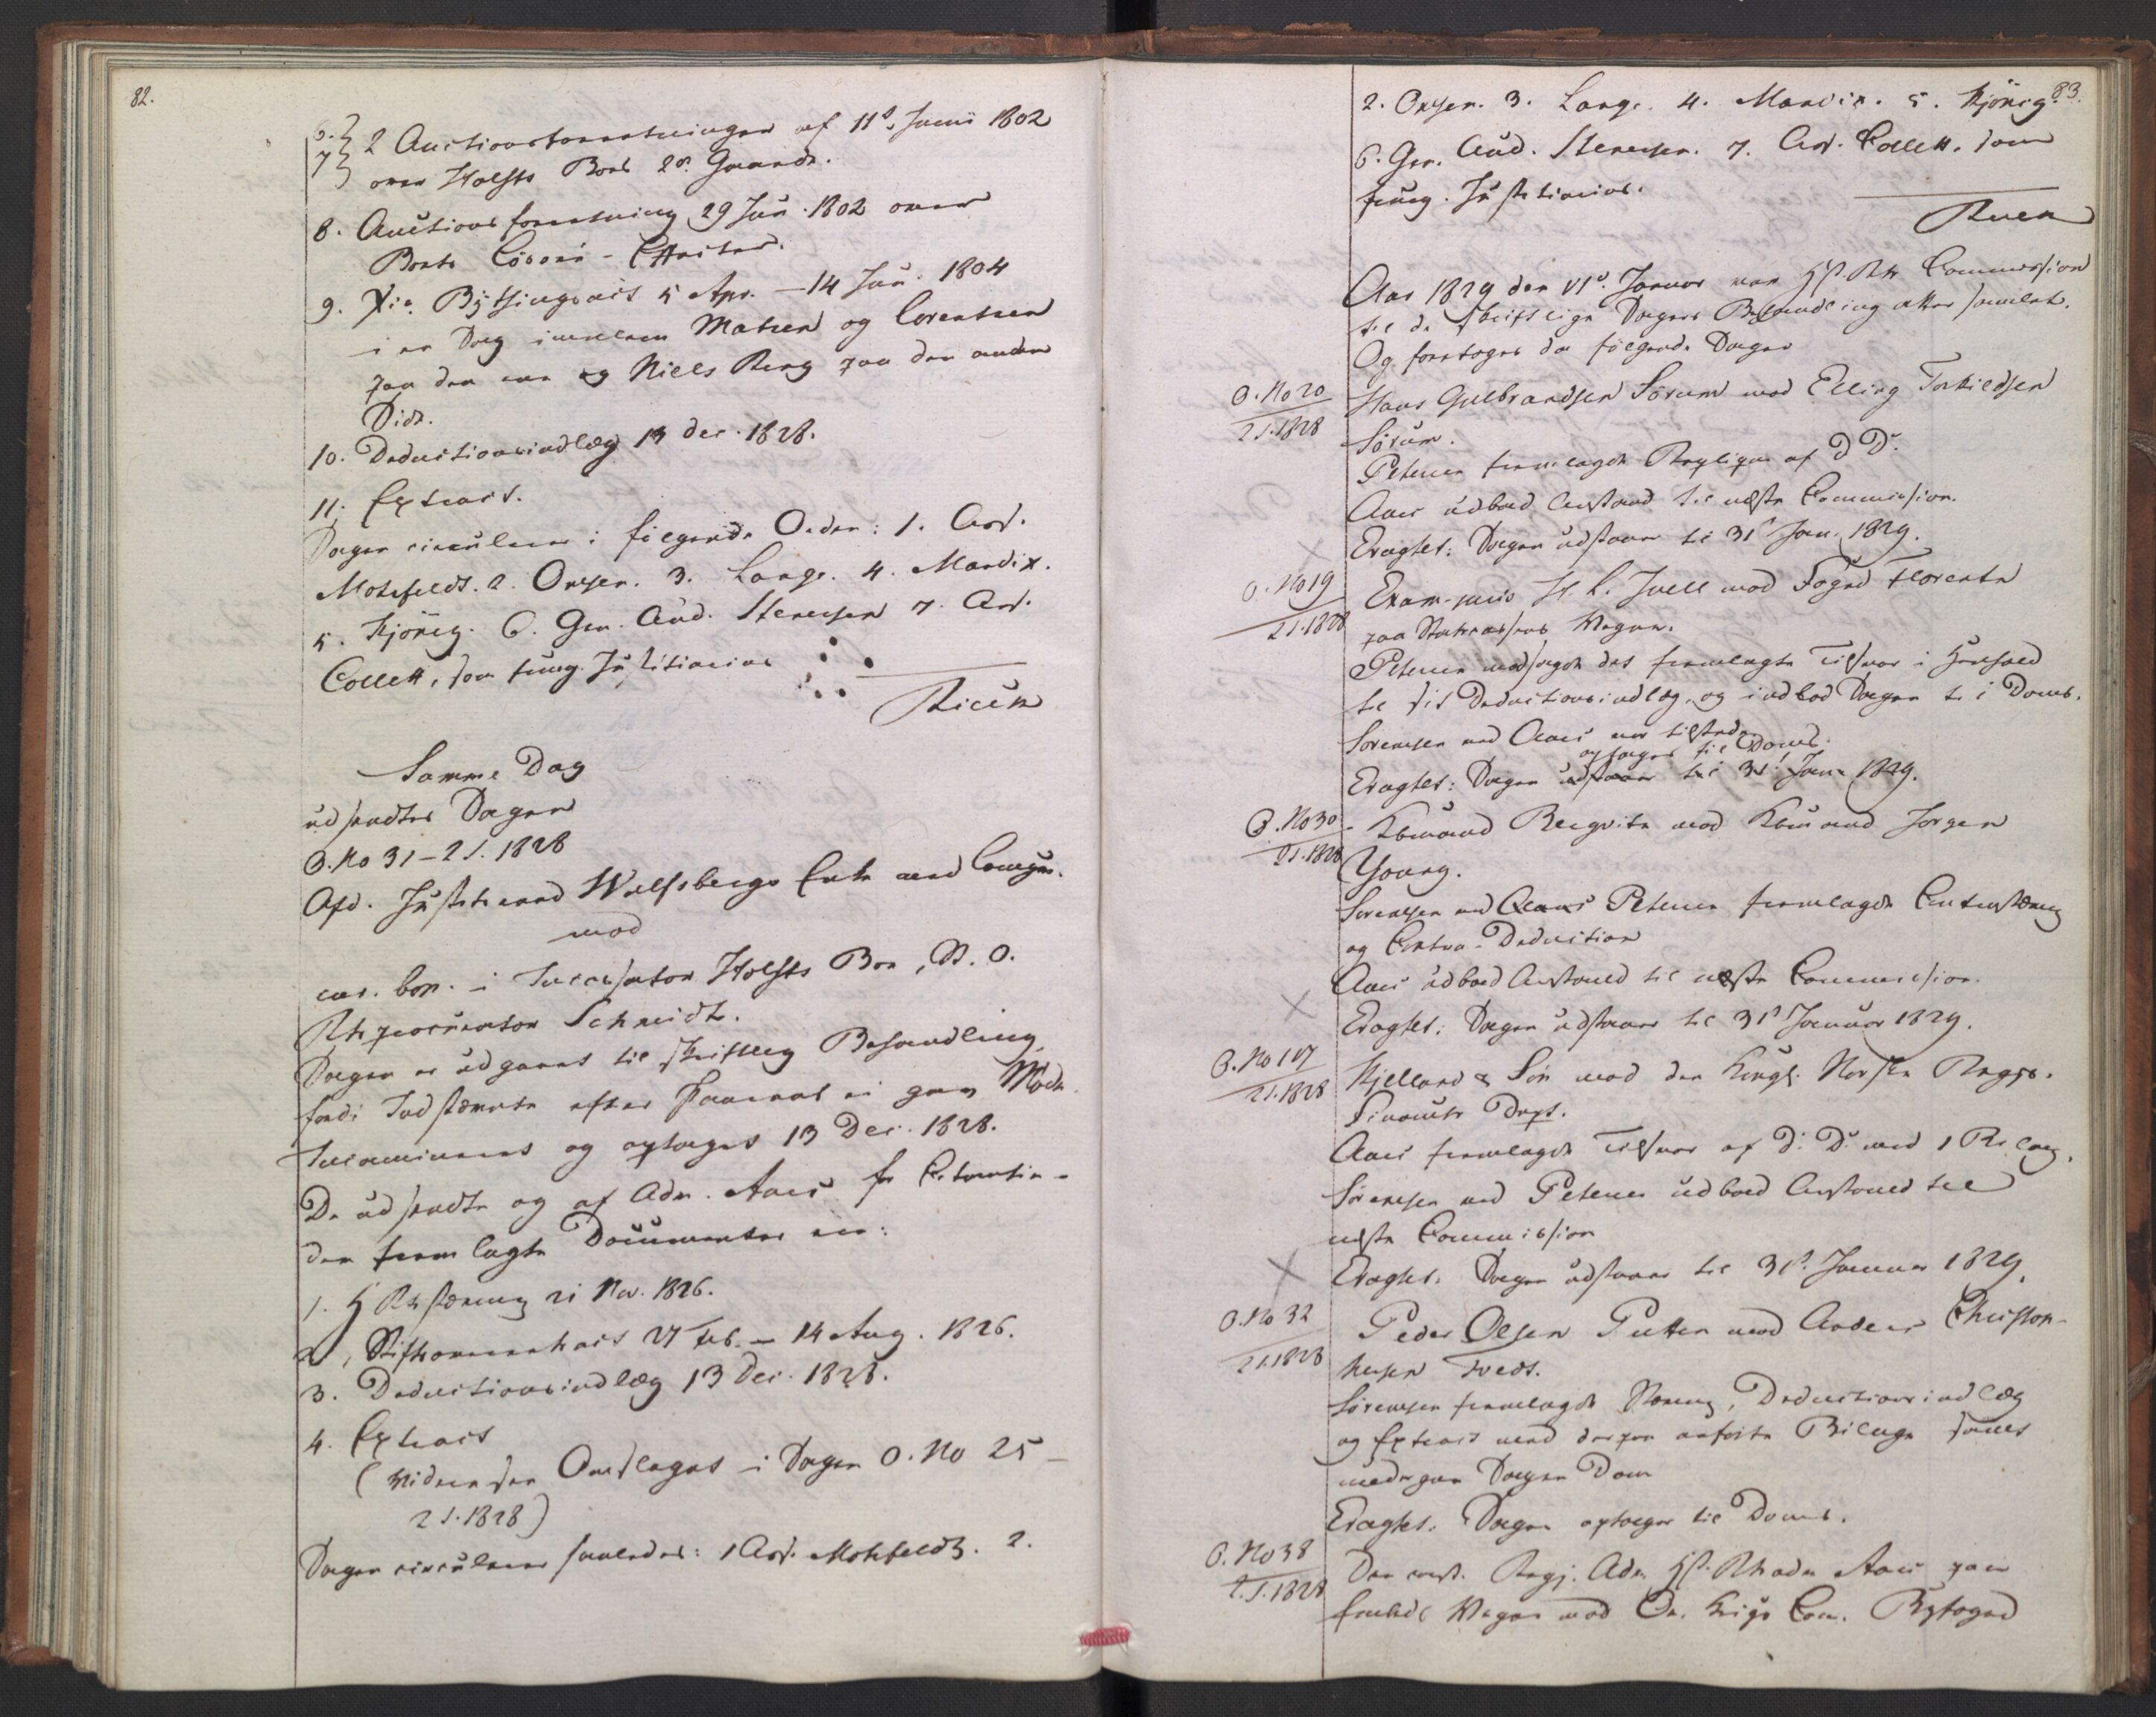 82.
6. } 2 Auctionsforretninger af 11te Junii 1802
7 } over Holsts Boes 2de Gaarde.
8. Auctionsforretning 29 Jun. 1802 over
Boets Løsøre-Effecter.
9. Xia. Bythingsact 5 Apr. - 14 Jun. 1804
i en Sag imellem Matsen og Lorentsen
paa den ene og Niels Berg paa den anden
Side.
10. Deductionsindlæg 13 Dec. 1828.
11. Extract.
Sagen circulerer i følgende Orden: 1. Ass.
Motzfeldt. 2. Omsen. 3. Lange. 4. Mandix.
5. Kjönig. 6. Gen. Aud. Stenersen 7. Ass.
Collett, som fung. Justitiarius
Rieck
Samme Dag
udsendtes Sagen
O. No 31 - 2 S. 1828
Afd. Justitsraad Wulfsbergs Enke med Laugv.
mod
const. bop. i Successator Holsts Boe, S. O.
Rtsprocurator Schmidt.
Sagen er udgaaet til skriftlig Behandling,
fordi Indstævnte efter Paaraab ei gav Møde.
Incamineret og optaget 13 Dec. 1828.
De udsendte og af Adv. Aars for Citantin-
den fremlagte Documenter ere:
1. H Rtsstævning 21 Nov. 1826.
2, Stiftsoverretsact 27 Feb. - 14 Aug. 1826.
3. Deductionsindlæg 13 Dec. 1828.
4. Extract
(Videre see Omslaget i Sagen O. No 25 -
2 S. 1828)
Sagen circulerer saaledes: 1 Ass. Motzfeldt. 2.
83.
2. Omsen. 3. Lange. 4. Mandix. 5. Kjönig.
6. Gen. Aud. Stenersen. 7. Ass. Collett. som
fung. Justitiarius.
Rieck
Aar 1829 den 17de Januar var HøiesteRts Commission
til de skriftlige Sagers Behandling atter samlet.
Og foretoges da følgende Sager
O. No 20
2 S. 1828
Hans Gulbrandsen Sörum mod Elling Torkildsen
Sörum.
Petersen fremlagde Replique af D. D.
Aars udbad Anstand til næste Commission.
Eragtet: Sagen udstaaer til 31te Jan. 1829.
O. No 19
2 S. 1828
Exam. juris H. L. Juell mod Foged Florentz
paa Statcassens Vegne.
Petersen modsagde det fremlagte Tilsvar i Henhold
til sit Deductionsindlæg, og indlod Sagen til Doms.
Sørensen ved Aars var tilstede
optages til Doms.
Eragtet: Sagen udstaaer til 31te Jan. 1829.
O. No 30
2 S. 1828
Kbmand Bergwitz mod Kbmand Jörgen
Young.
Sørensen ved Aars Petersen fremlagde Contrastævning
og Contra-Deduction
Aars udbad Anstand til næste Commission.
Eragtet: Sagen udstaaer til 31te Januar 1829.
O. No 107
2 S. 1828
Kjelland & Søn mod den Kongl. Norske Regjs.
Finants Dept.
Aars fremlagde Tilsvar af D. D. med 1 Bilag.
Sørensen ved Petersen udbad Anstand til
næste Commission
Eragtet: Sagen udstaaer til 31te Januar 1829.
O. No 32
2 S. 1828
Peder Olsen Putten mod Anders Christop-
hersen Tvedt.
Sørensen fremlagde Stævning, Deductionsindlæg
og Extract med derpaa anførte Bilage samt
nedergav Sagen Dom
Eragtet: Sagen optages til Doms.
O. No 38
2. S. 1828
Den const. Regj. Adv. HøiesteRtsadv. Aars paa
Embeds Vegne mod Or. Krigs Com. Byfoged